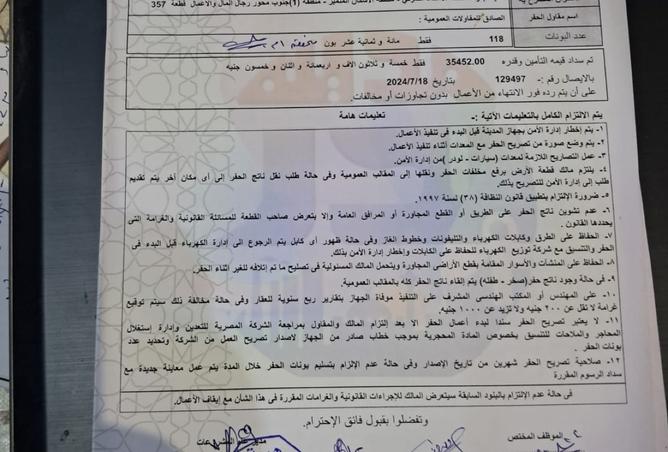 منطقة (1) جنوب محور رجال المال والأعمال قطعة 357
اسم مقاول الحفر
الصادق للمقاولات العمومية :
عدد البونات
118 فقط مائة و ثمانية عشر بون
تم سداد قيمه التأمين وقدره 35452.00 فقط خمسة و ثلاثون الاف و اربعمائة و اثنان و خمسون جنيه
بالايصال رقم :- 129497 بتاريخ 2024/7/18
على أن يتم رده فور الانتهاء من الأعمال بدون تجاوزات أو مخالفات.
يتم الالتزام الكامل بالتعليمات الآتية :- تعليمات هامة
١- يتم إخطار إدارة الأمن بجهاز المدينة قبل البدء فى تنفيذ الأعمال.
٢- يتم وضع صورة من تصريح الحفر مع المعدات أثناء تنفيذ الأعمال.
٣- عمل التصاريح اللازمة لمعدات (سيارات - لودر )من إدارة الأمن.
٤- يلتزم مالك قطعة الأرض برفع مخلفات الحفر ونقلها إلى المقالب العمومية وفى حالة طلب نقل ناتج الحفر إلى أى مكان أخر يتم تقديم
طلب إلى إدارة الأمن للتصريح بذلك.
٥- ضرورة الإلتزام بتطبيق قانون النظافة (٣٨) لسنة ١٩٩٧.
٦- عدم تشوين ناتج الحفر على الطريق أو القطع المجاورة أو المرافق العامة وإلا يتعرض صاحب القطعة للمسائلة القانونية والغرامة التى
يحددها القانون .
٧- الحفاظ على الطرق وكابلات الكهرباء والتليفونات وخطوط الغاز وفى حالة ظهور أى كابل يتم الرجوع الى إدارة الكهرباء قبل البدء فى
الحفر والتنسيق مع شركة توزيع الكهرباء للحفاظ على الكابلات وإخطار إدارة الأمن بذلك.
٨- الحفاظ على المنشآت والأسوار المقامة بقطع الأراضى المجاورة ويتحمل المالك المسئولية فى تصليح ما تم إتلافه للغير أثناء الحفر.
٩- فى حالة وجود ناتج حفر(صخر - طفله) يتم إلقاء ناتج الحفر كله بالمقالب العمومية.
١٠- على المهندس أو المكتب الهندسى المشرف على التنفيذ موفاة الجهاز بتقارير ربع سنوية للعقار وفى حالة مخالفة ذلك سيتم توقيع
غرامة لا تقل عن ٢٠٠ جنيه ولا تزيد عن ١٠٠٠ جنيه.
١١- لا يعتبر تصريح الحفر سندا لبدء أعمال الحفر الا بعد إلتزام المالك والمقاول بمراجعة الشركة المصرية للتعدين وإدارة إستغلال
المحاجر والملاحات للتنسيق بخصوص المادة المحجرية بموجب خطاب صادر من الجهاز لاصدار تصريح العمل من الشركة وتحديد عدد
بونات الحفر .
١٢- صلاحية تصريح الحفر شهرين من تاريخ الإصدار وفى حالة عدم الإلزام بتسليم بونات الحفر خلال المدة يتم عمل معاينة جديدة مع
سداد الرسوم المقررة
فى حالة عدم الإلتزام بالبنود السابقة سيتعرض المالك للإجراءات القانونية والغرامات المقررة فى هذا الشأن مع إيقاف الأعمال.
وتفضلوا بقبول فائق الإحترام.
الموظف المختص